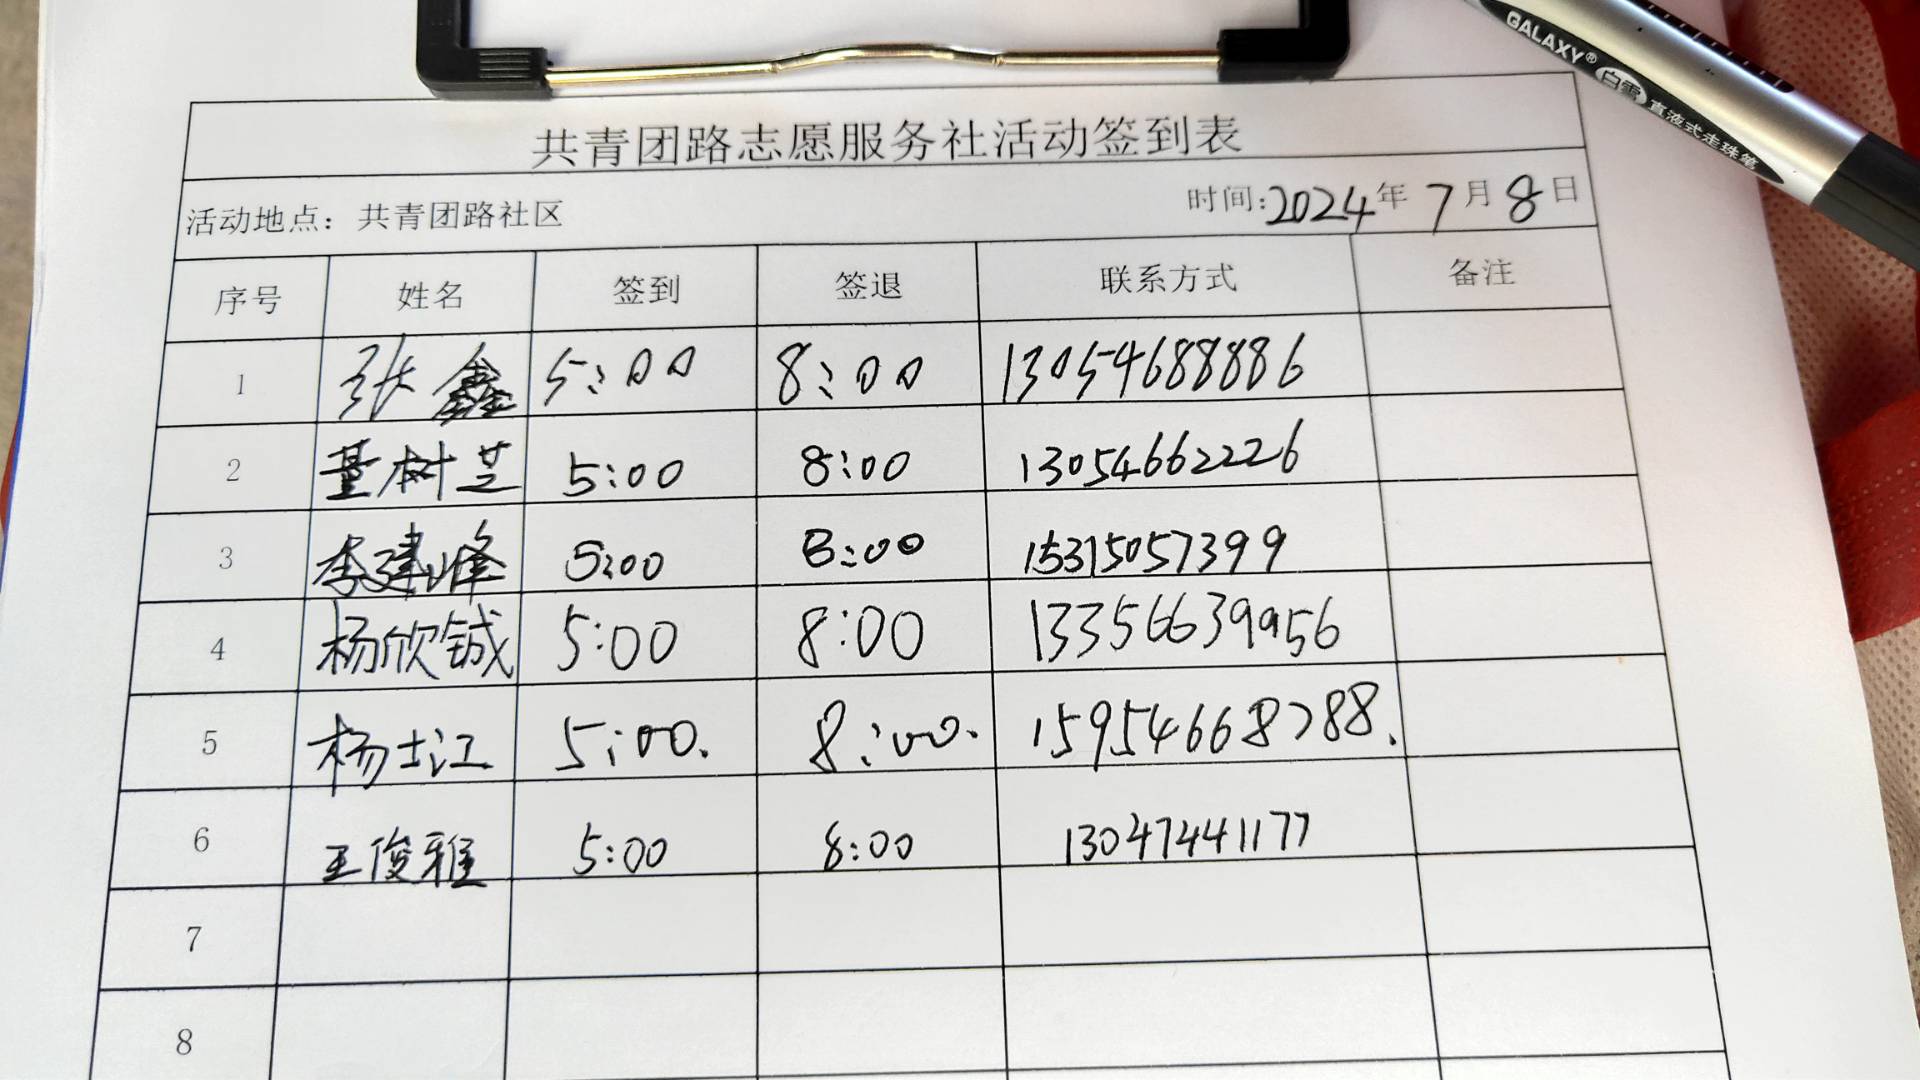 GALAXY® 白雪 直液式走珠笔
共青团路志愿服务社活动签到表
活动地点：共青团路社区 时间:2024年7月8日
序号 姓名 签到 签退 联系方式 备注
1 张鑫 5:00 8:00 13054688886
2 董树芝 5:00 8:00 13054662226
3 李建峰 5:00 8:00 15315057399
4 杨欣铖 5:00 8:00 13356639956
5 杨士江 5:00. 8:00. 15954668788.
6 王俊雅 5:00 8:00 13047441177
7
8